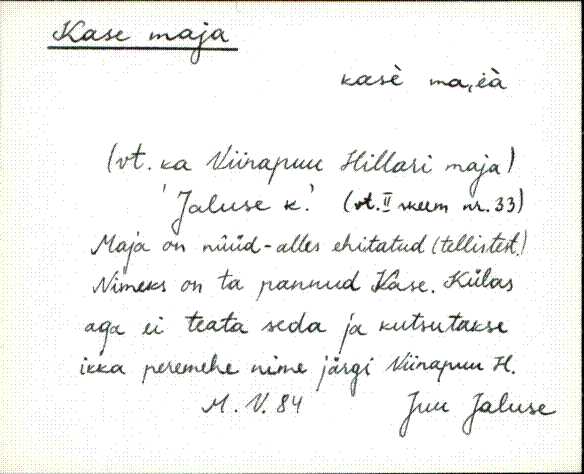 Kase maja
kasè ma,ià
(vt. ka Viinapuu Hillari maja)
'Jaluse k.' (vt. II skeem nr. 33)
Maja on nüüd-alles ehitatud (tellistest.)
Nimeks on ta pannud Kase. Külas
aga ei teata seda ja kutsutakse
ikka peremehe nime järgi Viinapuu H.
M. V. 84 Juu Jaluse